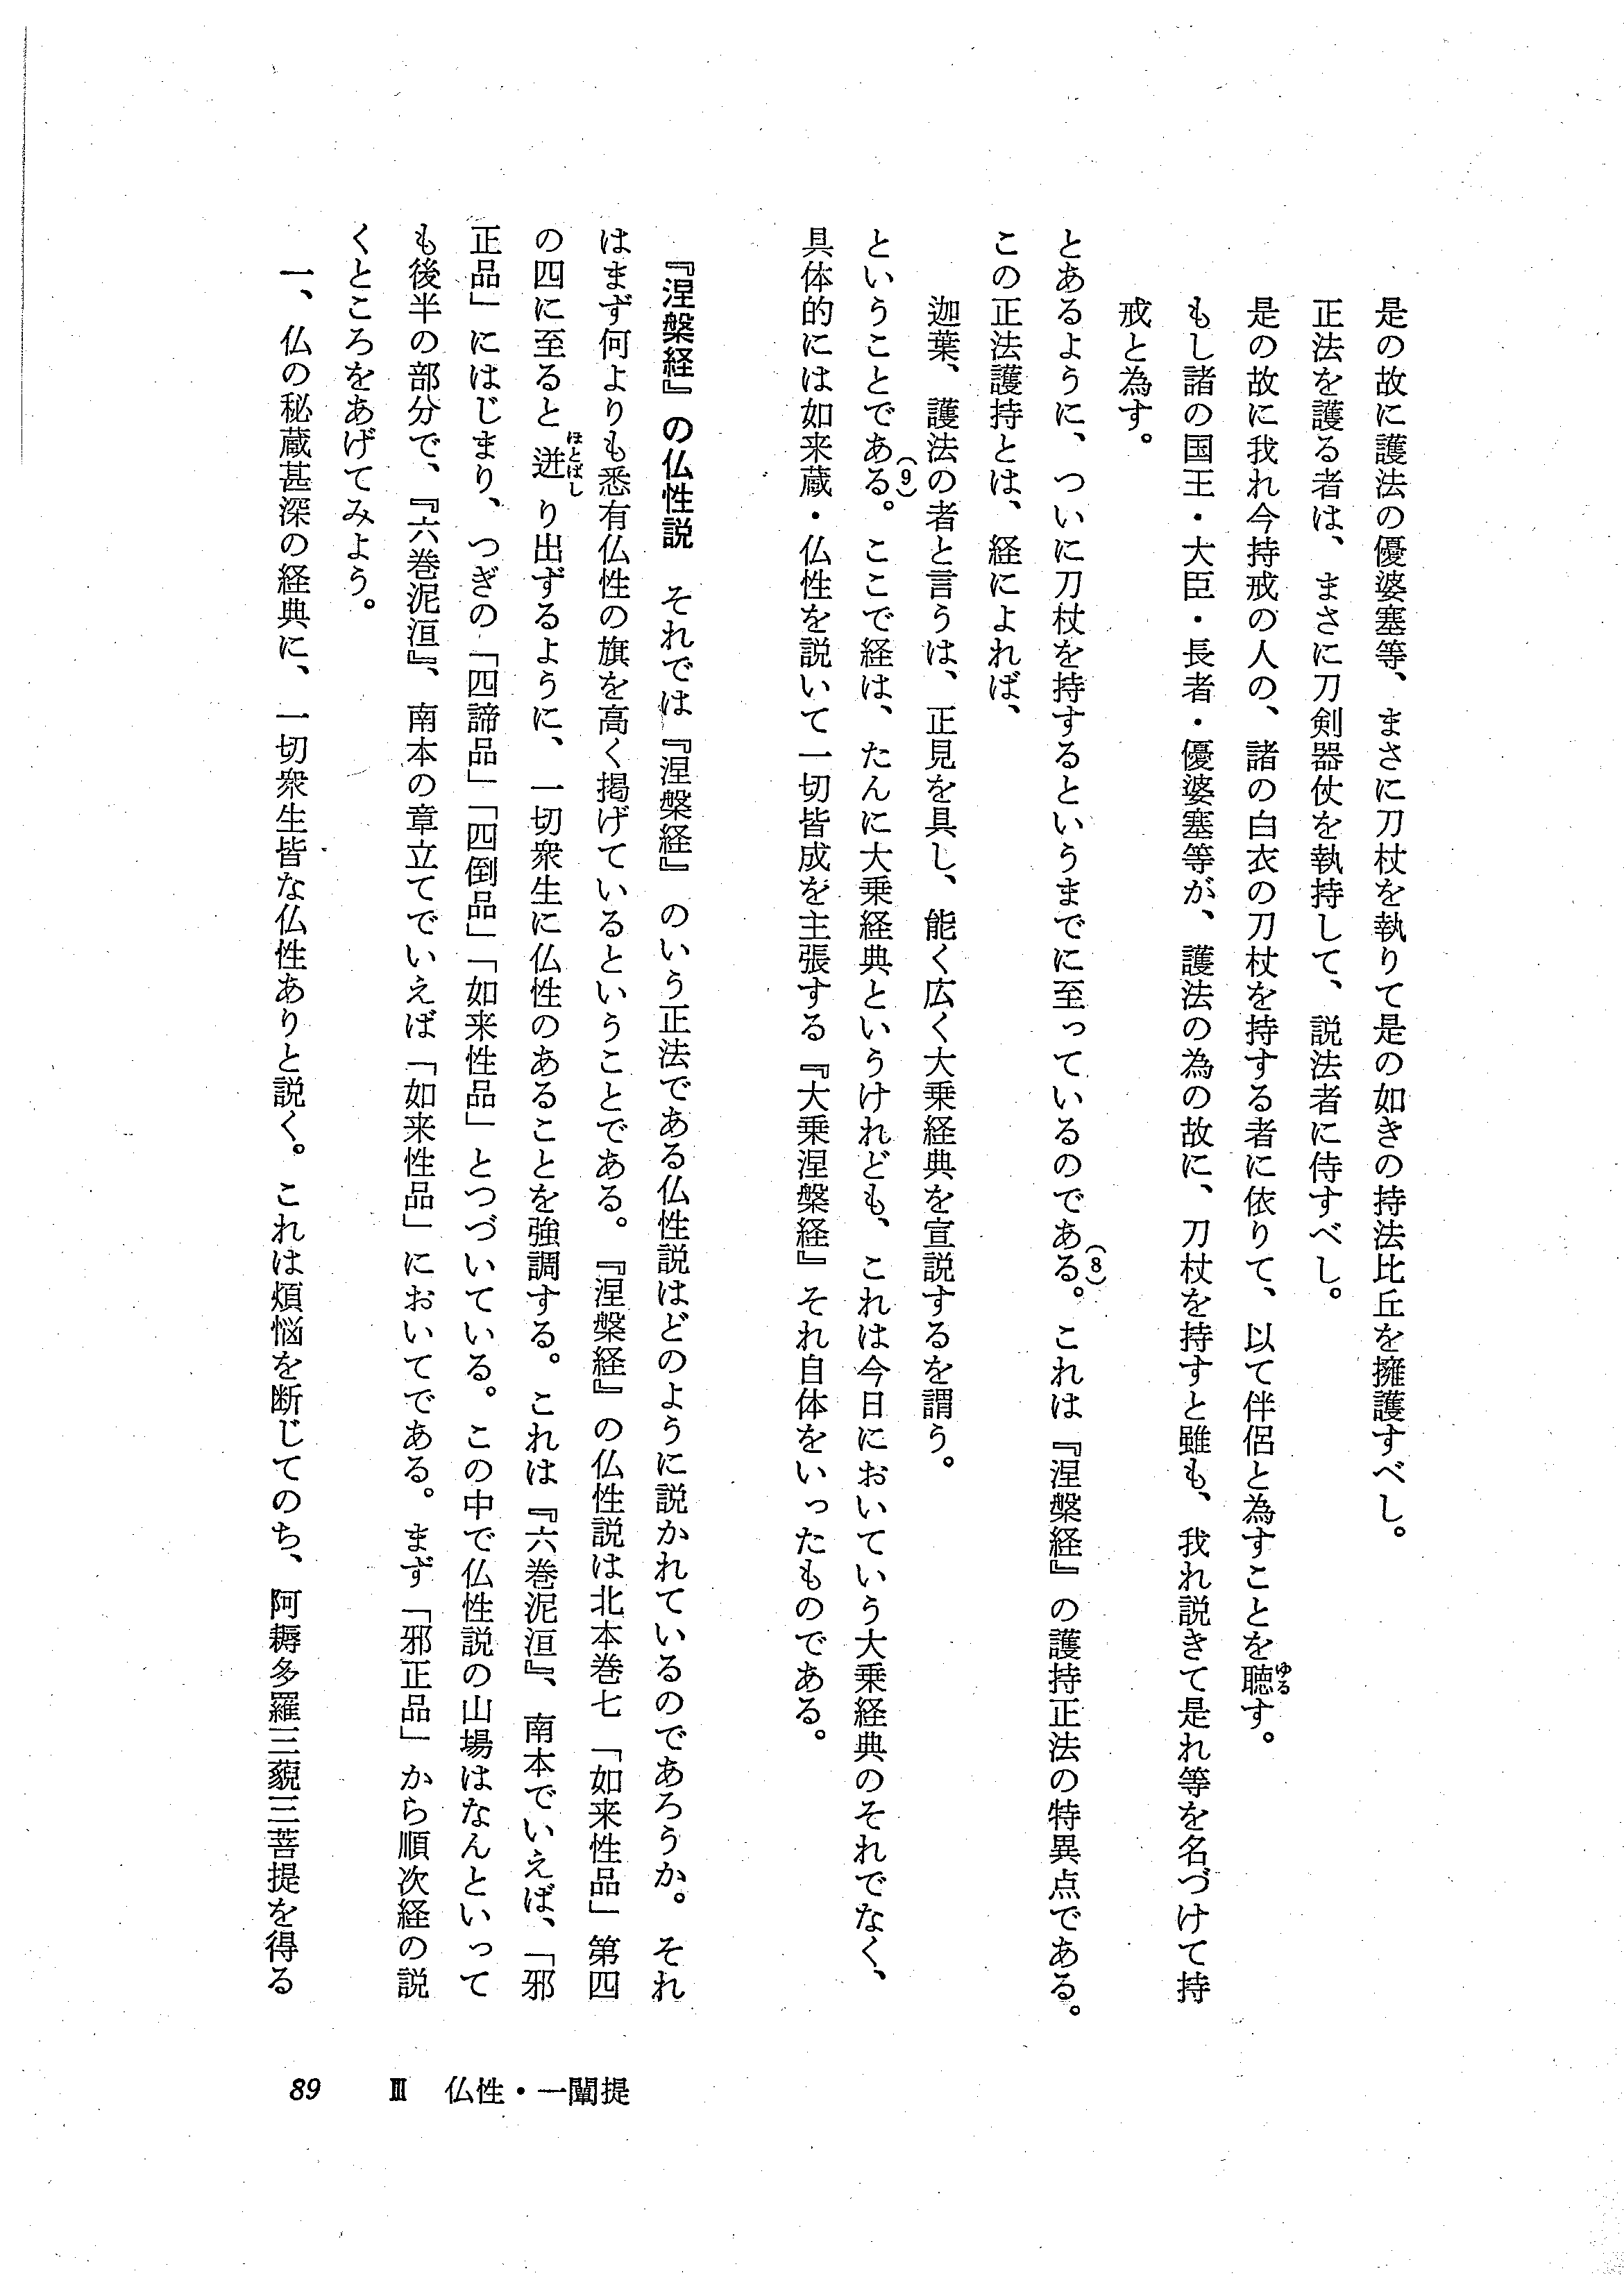 是の故に護法の優婆塞等、まさに刀杖を執りて是の如きの持法比丘を擁護すべし。
正法を護る者は、まさに刀剣器仗を執持して、説法者に侍すべし。
是の故に我れ今持戒の人の、諸の白衣の刀杖を持する者に依りて、以て伴侶と為すことを聴す。
ゆる
もし諸の国王・大臣・長者・優婆塞等が、護法の為の故に、刀杖を持すと雖も、我れ説きて是れ等を名づけて持
戒と為す。
とあるように、ついに刀杖を持するというまでに至っているのである(8)。これは『涅槃経』の護持正法の特異点である。
この正法護持とは、経によれば、
迦葉、護法の者と言うは、正見を具し、能く広く大乗経典を宣説するを謂う。
ということである(9)。ここで経は、たんに大乗経典というけれども、これは今日においていう大乗経典のそれでなく、
具体的には如来蔵・仏性を説いて一切皆成を主張する『大乗涅槃経』それ自体をいったものである。
『涅槃経』の仏性説　それでは『涅槃経』のいう正法である仏性説はどのように説かれているのであろうか。それ
はまず何よりも悉有仏性の旗を高く掲げているということである。『涅槃経』の仏性説は北本巻七「如来性品」第四
の四に至ると迸り出ずるように、一切衆生に仏性のあることを強調する。これは『六巻泥洹』、南本でいえば、「邪
ほとばし
正品」にはじまり、つぎの「四諦品」「四倒品」「如来性品」とつづいている。この中で仏性説の山場はなんといって
も後半の部分で、『六巻泥洹』、南本の章立てでいえば「如来性品」においてである。まず「邪正品」から順次経の説
くところをあげてみよう。
一、仏の秘蔵甚深の経典に、一切衆生皆な仏性ありと説く。これは煩悩を断じてのち、阿耨多羅三藐三菩提を得る
89　Ⅲ　仏性・一闡提